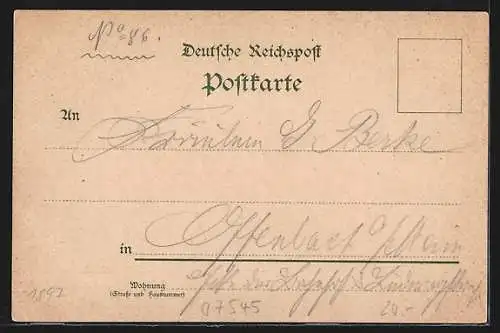 No 86.
Deutsche Reichspost
Postkarte
An
Fräulein G. Berke
Offenbach
in
Wohnung
(Straße und Hausnummer)
1897
07545
20.-